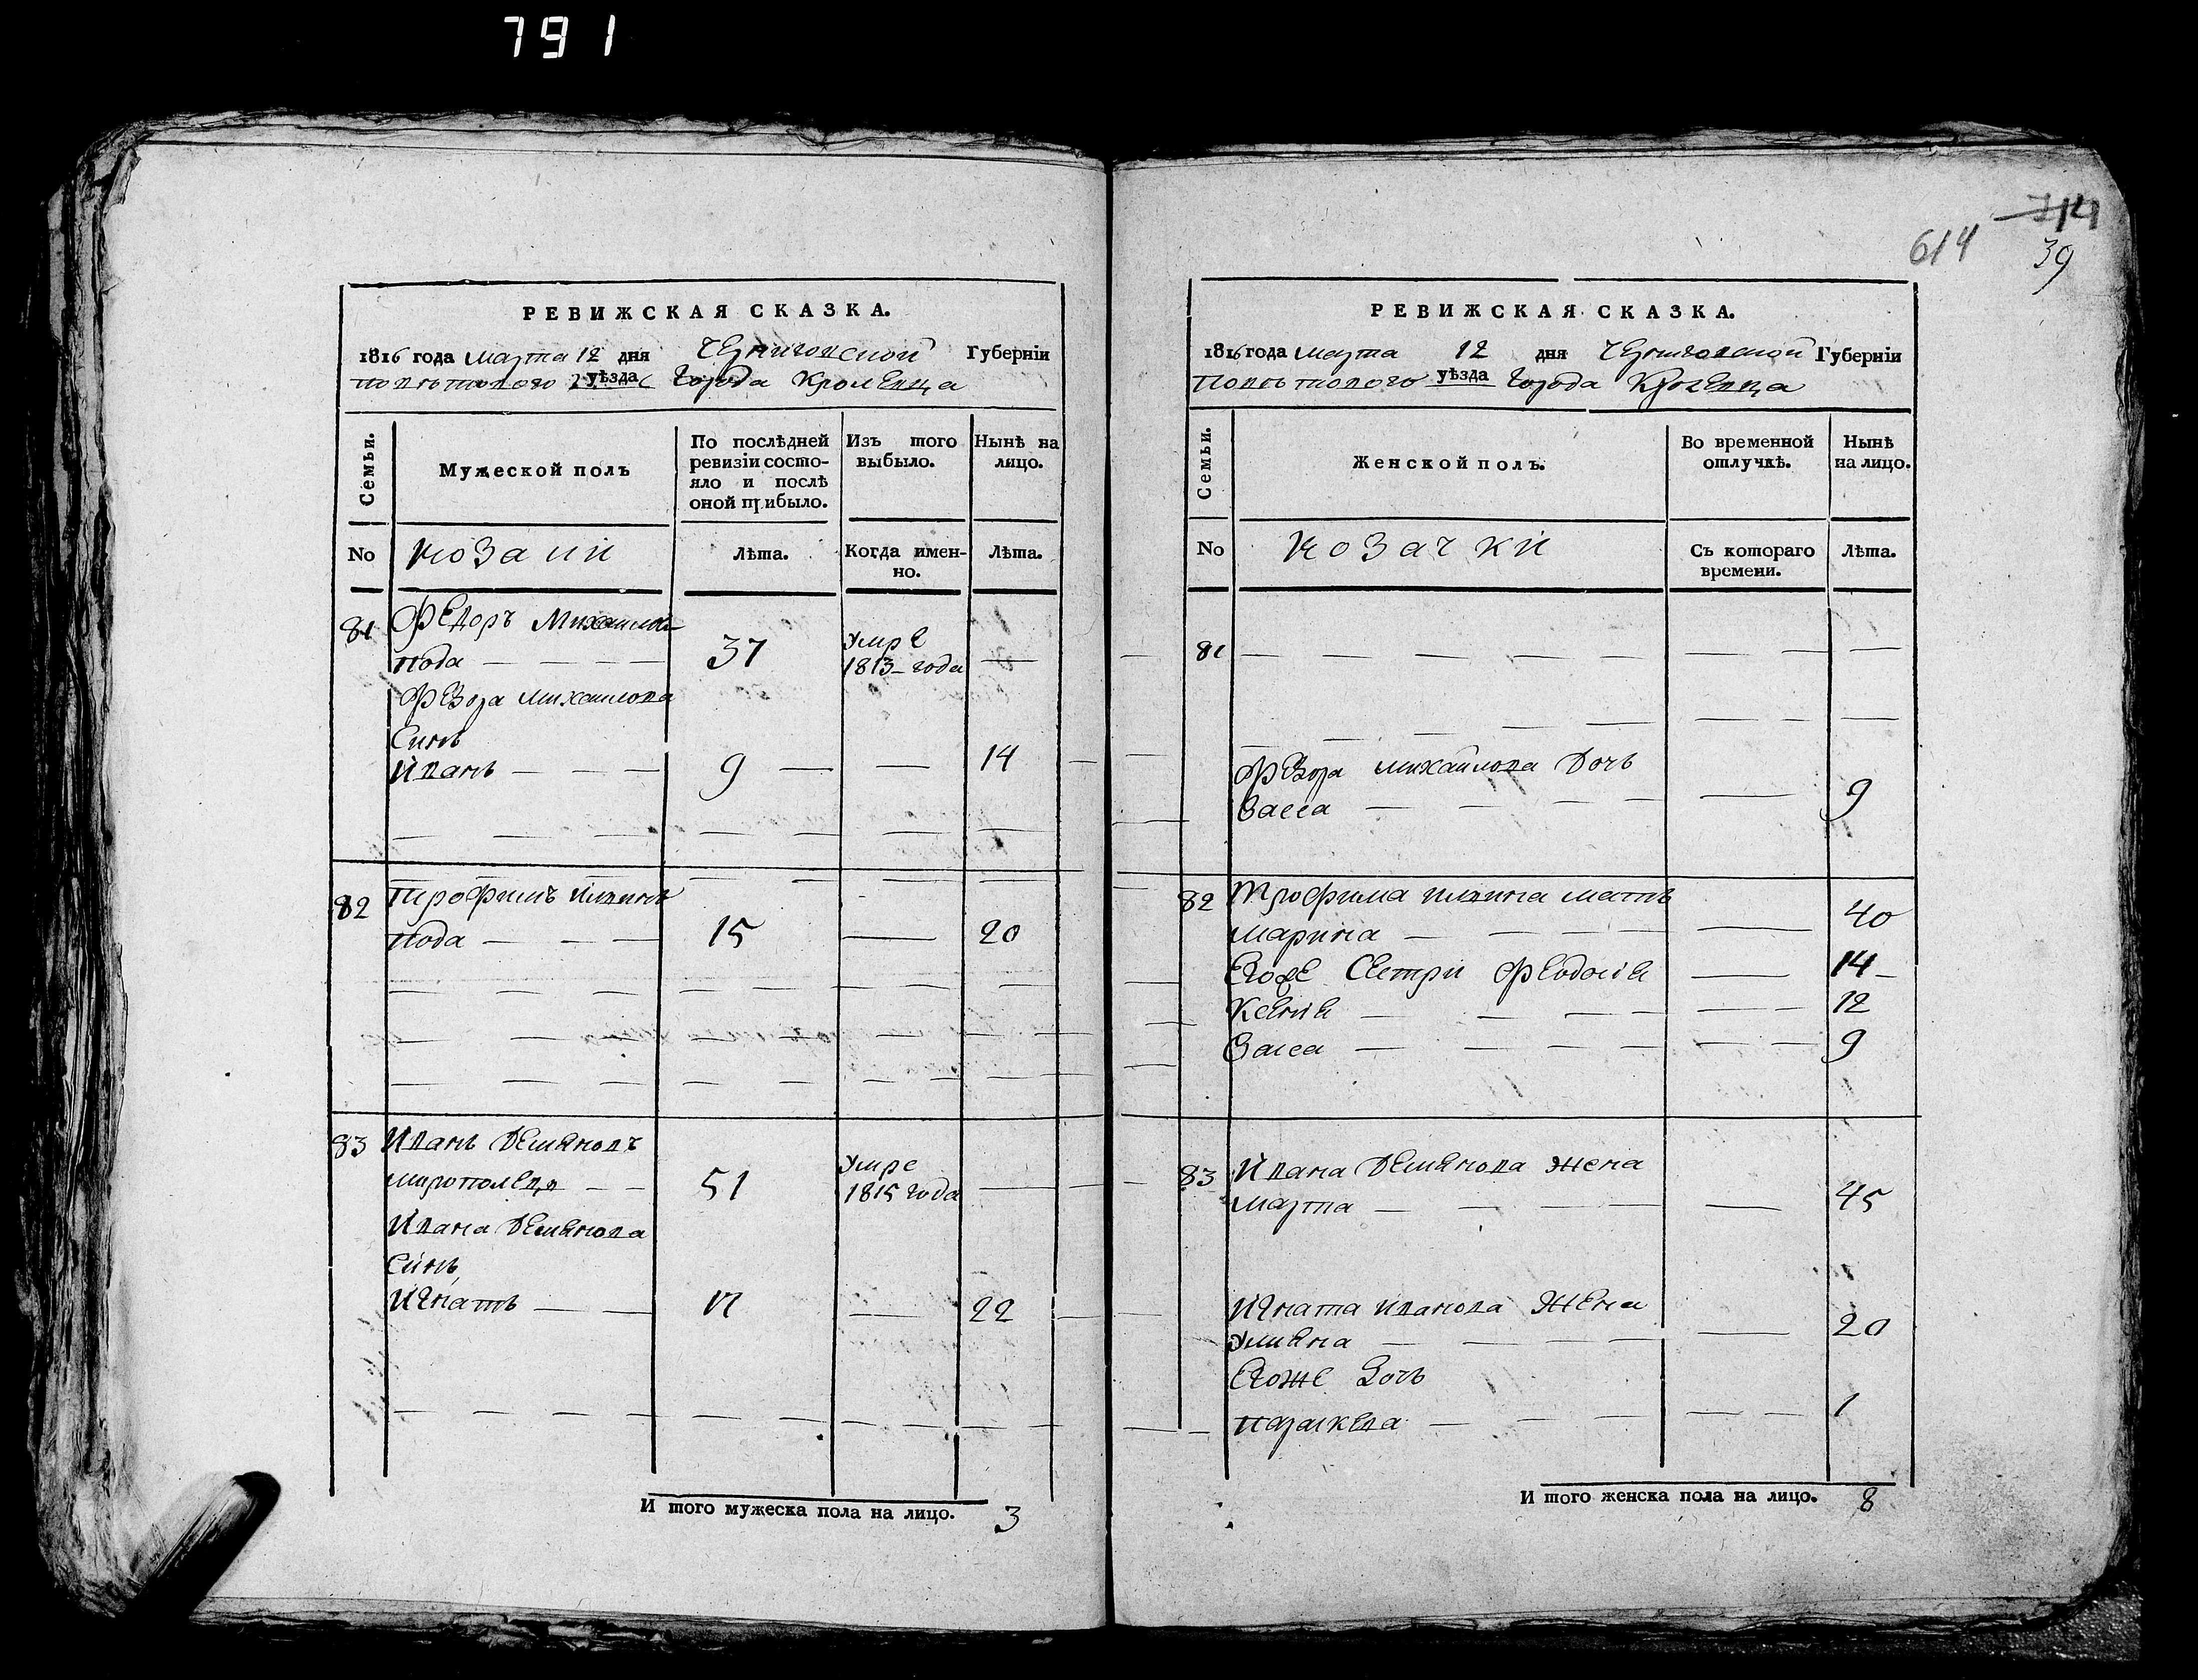 791
РЕВИЖСКАЯ СКАЗКА.
1816 года марта 12 дня Черниговской Губерніи
уѣзда Города Кролевца
Семьи.
Мужеской полъ
По послѣдней ревизіи состо-
яло и послѣ
оной прибыло.
Изъ того
выбыло.
Нынѣ на
лицо.
No
козаки
Лѣта.
Когда имен-
но.
Лѣта.
81
Федоръ Михаилов
вода
37
умре
1813 года
Федора михаилова
Синъ
Иванъ
9
14
82
трофимъ илвинъ
вода
15
20
83
Иванъ Демяновъ
мирополецъ
51
умре
1815 года
Ивана Демянова
Синъ
Игнатъ
17
22
И того мужеска пола на лицо. 3
714
614
39
РЕВИЖСКАЯ СКАЗКА.
1816 года марта 12 дня Черниговской Губерніи
уѣзда Города Кролевца
Семьи.
Женской полъ.
Во временной
отлучкѣ.
Нынѣ
на лицо.
No
козачки
Съ котораго
времени.
Лѣта.
81
Федора михаилова Дочъ
Васса
9
82
Трофима илвина мать
марина
40
Егоже Сестри Феодосія
14
Ксенія
12
Васса
9
83
Ивана Демянова жена
марта
45
Игната иванова жена
улияна
20
Егоже Дочъ
параскева
1
И того женска пола на лицо. 8